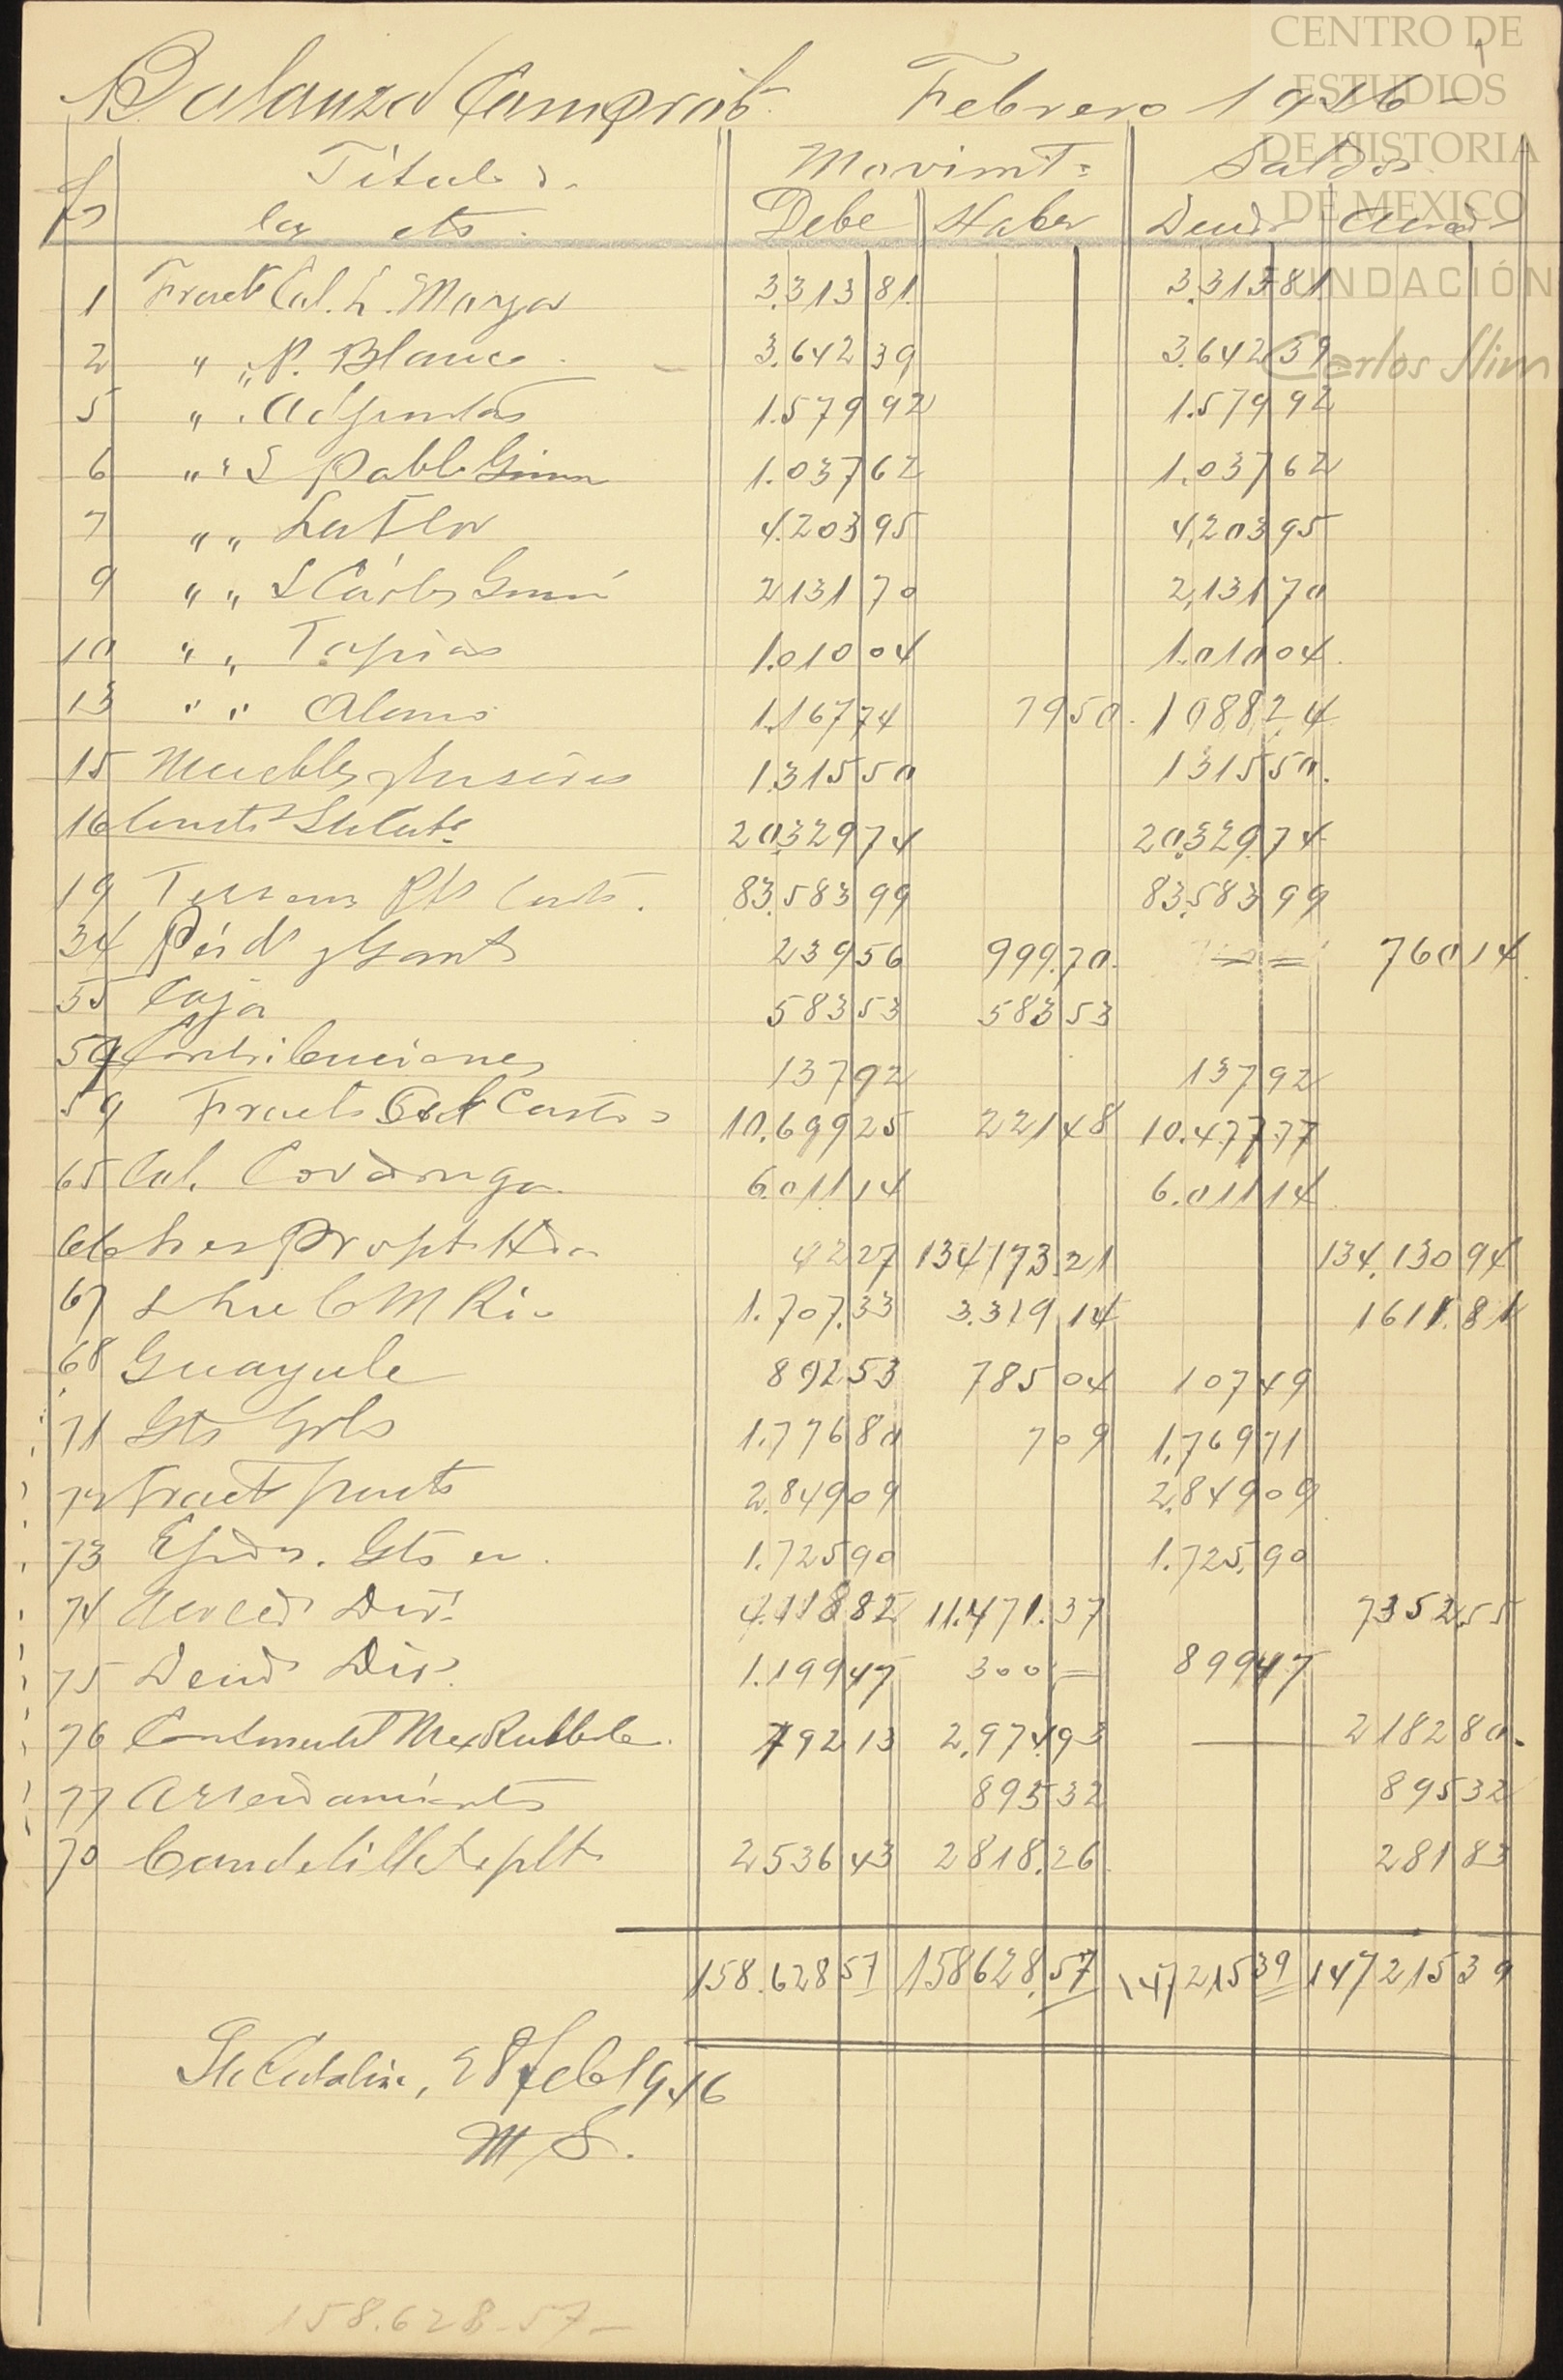 CENTRO DE
ESTUDIOS
DE HISTORIA
DE MEXICO
FUNDACIÓN
Carlos Slim
Balanza Comprob. Febrero 1916
Titulos Movimt. Saldos
fs Debe Haber Deud. Acred.
1 Fract Cal. L. Mayor 3.313 81 3.313 81
2 " " P. Blanco 3.642 39 3.642 39
5 " " Adjuntas 1.579 92 1.579 92
6 " " S Pablo 1.037 62 1.037 62
7 " " 4.203 95 4.203 95
9 " " S Cárlos 2131 70 2,131 70
10 " " Tapias 1.010 04 1.010 04
13 " " Alamo 1.167 74 79 50 1088 24
15 Muebles 1.315 50 1315 50
16 20.329 74 20.329 74
19 83.583 99 83.583 99
34 Pérds y Gants 239 56 999.70 760 14
55 Caja 583 53 583 53
57 Contribuciones 137 92 137 92
59 Fract Costos 10.699 25 221 48 10.477.77
65 Cal. Covadonga 6.011 14 6.011 14
66 42 27 134173.21 134.130 94
67 1.707.33 3.319 14 1611.81
68 Guayule 892 53 785 04 107 49
71 Gts Grls 1.776 80 7 09 1.769 71
72 Fract 2.849 09 2.849 09
73 Gts en 1.725 90 1.725.90
74 Acreeds Divs. 4.118 82 11.471.37 7352.55
75 Deuds Divs. 1.199 47 300 = 899 47
76 Continental Mex Rubber 792 13 2.974.93 2182 80
77 Arrendamientos 895 32 895 32
70 Candelilla 2536 43 2818.26 281 83
158.628 57 158628.57 147215 39 147215 39
Sta Catalina, 28 feb 1916
M S.
158.628.57